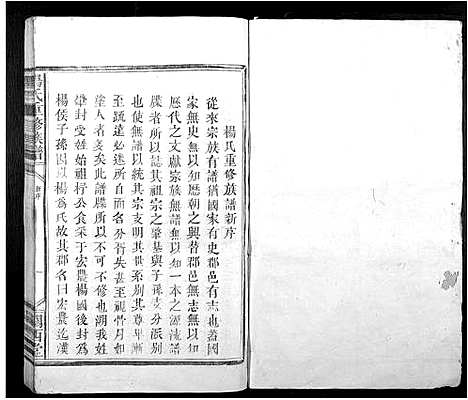 楊氏重修族譜新序
從來宗族有譜猶國家有史郡邑有志蓋國
家無史無以知歷朝之興替郡邑無志無以知
歷代之文獻宗族無譜無以知一本之源流譜
牒者所以誌其祖宗之肇基與子孫支分派別
也無譜以統其宗支明其世系則其尊卑漸
至疏遠始迷所自而名分舛矣甚至視骨月如
塗人者多矣此譜牒之不可不修也溯我姓
雄封受姓始祖杼公食采于宏農楊國後封為
楊侯子孫因以楊為氏故其郡名曰宏農迄漢
楊氏重修族譜
新序
關西堂